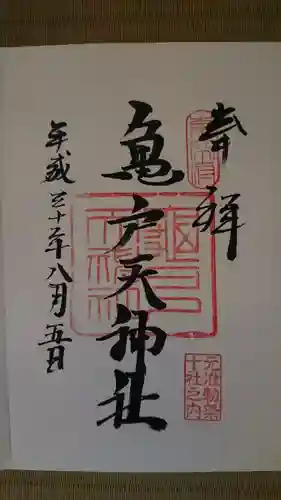 奉拝
亀戸天神社
平成三十年八月五日
元准勅祭
十社之内